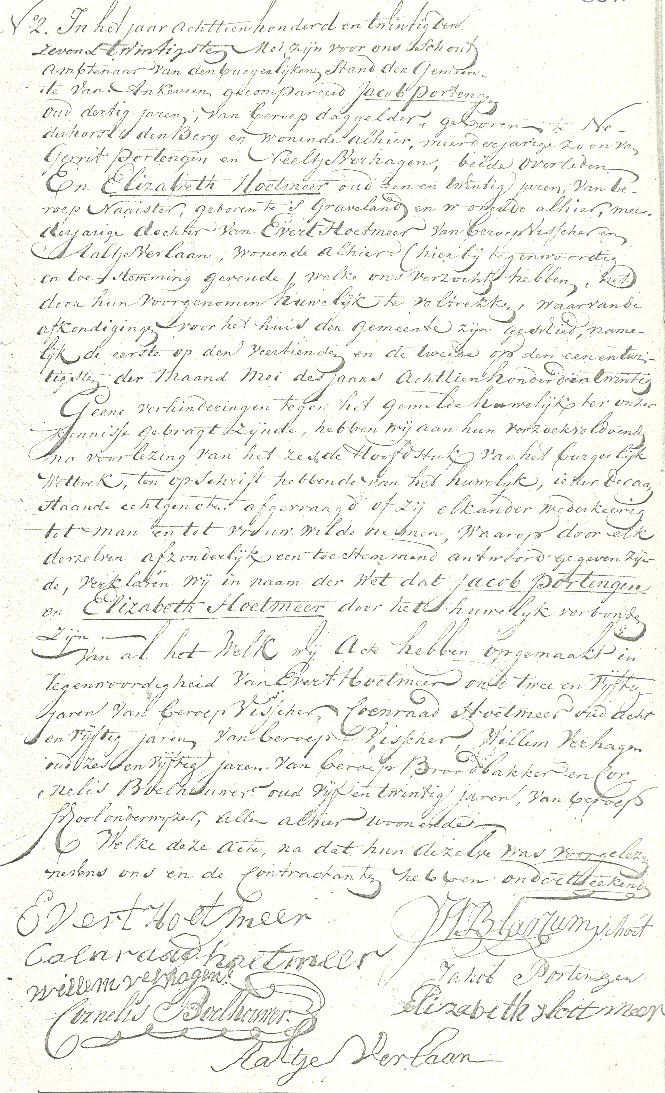 N° 2. In het jaar Achttienhonderd en twintig den
zevenentwintigsten Mei zijn voor ons Schout
Amptenaar van den burgerlijken Stand der Gemeen-
te van Ankeveen gecompareerd Jacob Portengen
oud dertig jaren, van beroep daggelder, geboren te Ne-
derhorst den Berg en wonende alhier, meerderjarige zoon van
Gerrit Portengen en Neeltje Verhagen, beide overleden
En Elizabeth Hoetmeer oud een en twintig jaren, van be-
roep Naaister, geboren te S Graveland en wonende alhier, mee-
derjarige dochter van Evert Hoetmeer van beroep visscher en
Aaltje Verlaan, wonende alhier (hier bij tegenwoordig
en toestemming gevende) welke ons verzocht hebben, het
door hun voorgenomen huwelijk te voltrekken, waarvan de
afkondigingen voor het huis der gemeente zijn geschied, name-
lijk de eerste op den veertienden en de tweede op den een en twin-
tigsten der Maand Mei des jaars Achttienhonderd en twintig
Geene verhinderingen tegen het gemelde huwelijk ter onzer
kennisse gebragt zijnde, hebben wij aan hun verzoek voldoende
na voorlezing van het zesde Hoofdstuk van het burgerlijk
Wetboek, ten opschrift hebbende van het huwlyk, ieder der aan-
staande echtgenoten afgevraagd of zij elkander wederkeerig
tot man en tot vrouw wilde nemen, waarop door elk
derzelven afzonderlijk een toestemmend antwoord gegeven zijn-
de, verklaren wij in naam der Wet dat Jacob Portengen
en Elizabeth Hoetmeer door het huwelyk verbonden
zijn
Van al het Welk wij Acte hebben opgemaakt in
tegenwoordigheid van Evert Hoetmeer oud twee en vijftig
jaren van beroep Visscher, Coenraad Hoetmeer oud acht
en vijftig jaren, van beroep Visscher, Willem Verhagen
oud zes en vijftig jaren van beroep Broodbakker en Cor-
nelis Boelhouwer oud vijf en twintig jaren, van beroep
Schoolonderwyzer, alle alhier woonende
Welke deze Acte, na dat hun dezelve was voorgelezen
nevens ons en de Contractanten hebben onderteekend
Evert Hoetmeer
Schout
Coenraad hoetmeer
Jakob Portengen
willem verhagen
Elizabeth Hoetmeer
Cornelis Boelhouwer
Aaltje Verlaan